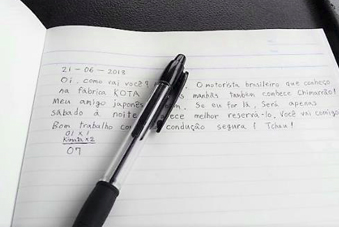 21-06-2018
Oi, como vai você? O motorista brasileiro que conheço
na fábrica KOTA manhãs também conhece Chimarrão!
Meu amigo japonês Se eu for lá, será apenas
sábado à noite melhor reservá-lo, Você vai comigo
Bom trabalho condução segura! Tchau!
01 x 1
x2
07